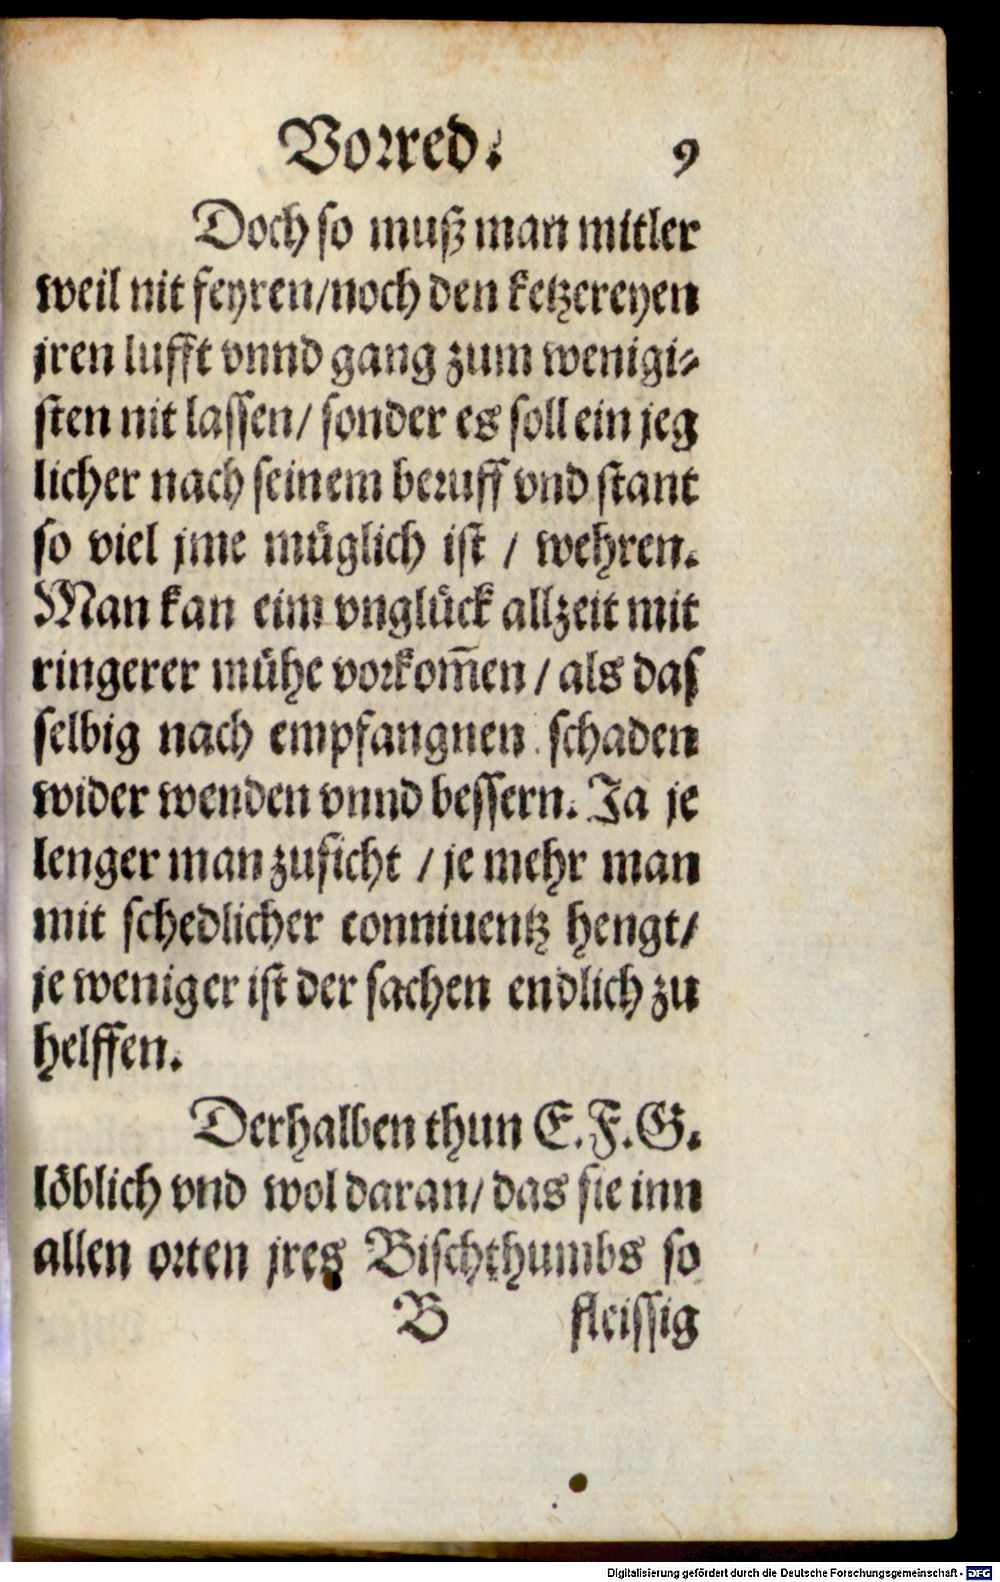 Vorred. 9
Doch so muß man mitler
weil nit feyren/noch den ketzereyen
jren lufft vnnd gang zum wenigi-
sten nit lassen/ sonder es soll ein jeg
licher nach seinem beruff vnd stant
so viel jme müglich ist / wehren.
Man kan eim vnglück allzeit mit
ringerer mühe vorkom̄en / als das
selbig nach empfangnen schaden
wider wenden vnnd bessern. Ja je
lenger man zusicht / je mehr man
mit schedlicher conniuentz hengt/
je weniger ist der sachen endlich zu
helffen.
Derhalben thun E. F. G.
löblich vnd wol daran/ das sie inn
allen orten jres Bischthumbs so
B fleissig
Digitalisierung gefördert durch die Deutsche Forschungsgemeinschaft - DFG